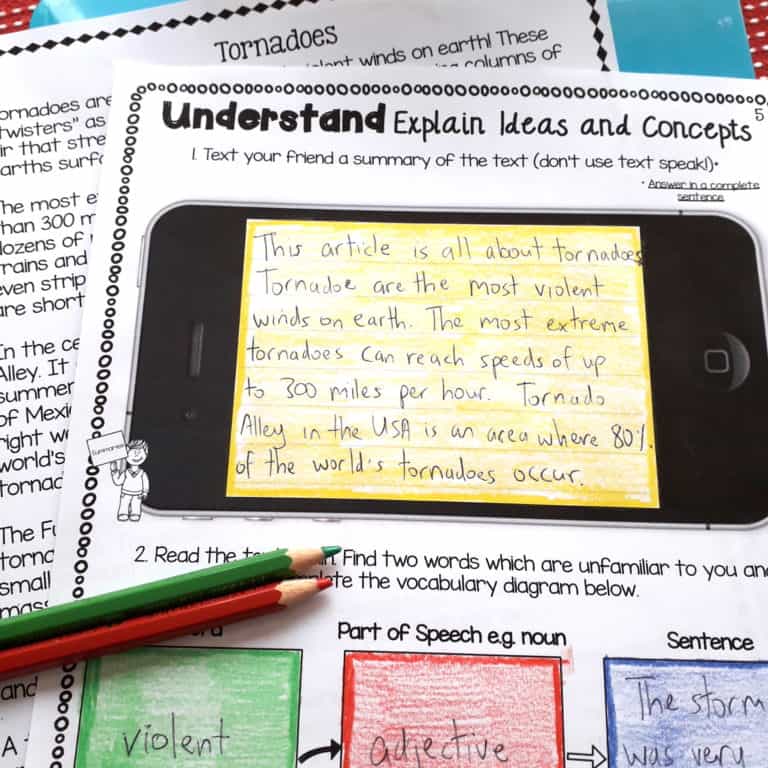 Tornadoes
winds on earth! These
columns of
ornadoes are
twisters" as
ir that stre
arths surfa
he most e
han 300 m
dozens of
rains and
even strip
are short
In the ce
Alley. It
summer
of Mexic
right w
world's
tornad
The Fu
torna
small
mass
and
A
5
Understand Explain Ideas and Concepts
1. Text your friend a summary of the text (don't use text speak!)*
* Answer in a complete
sentence.
This article is all about tornadoes
Tornadoe are the most violent
winds on earth. The most extreme
tornadoes can reach speeds of up
to 300 miles per hour. Tornado
Alley in the USA is an area where 80%
of the world's tornadoes occur.
Summaries
2. Read the Find two words which are unfamiliar to you and
the vocabulary diagram below.
Part of Speech e.g. noun
Sentence
violent
adjective
The storm
was very